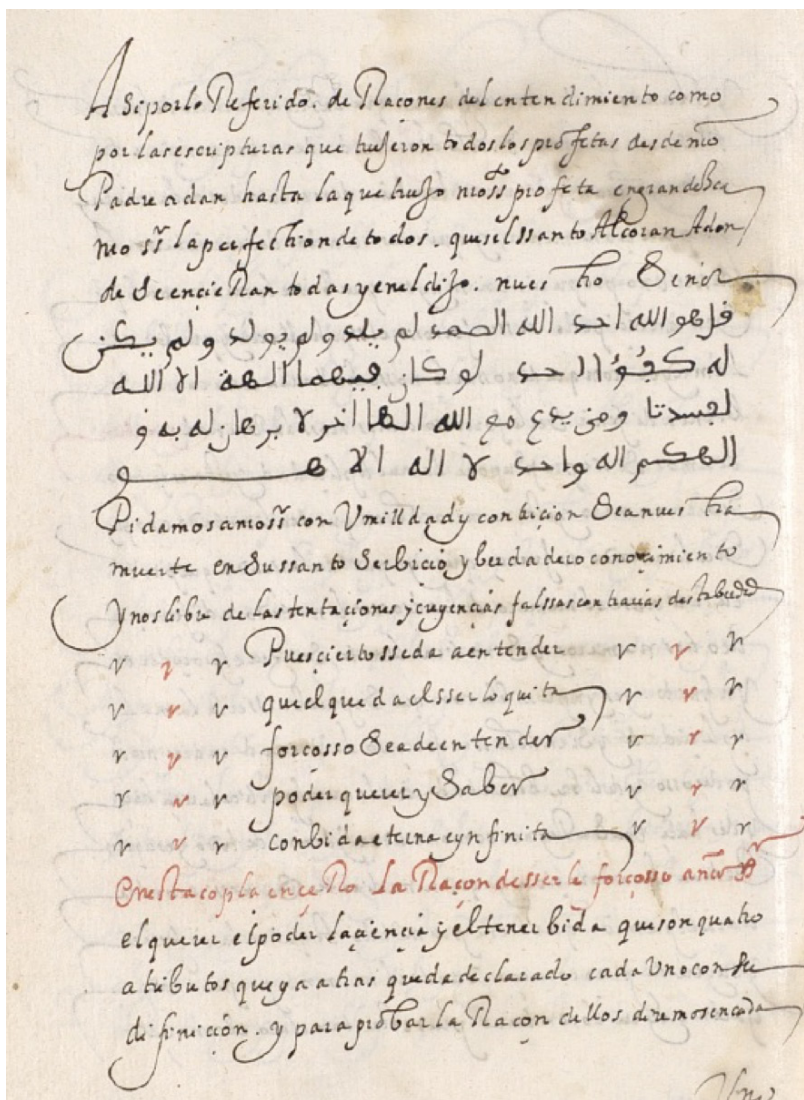 Asi por lo Referido. de Raçones del entendimiento como
por las escripturas que trujeron todos los profetas desde nro
Padre adan hasta la que trujo nro ssto profeta engrandesca
nro ssr la perfection de todos. ques el ssanto Alcoran Adon
de Se encieRan todas y en el dijo. nuestro Señor
قل هو الله احد الله الصمد لم يلد ولم يولد ولم يكن
له كفؤا احد لو كان فيهما الهة الا الله
لفسدتا ومن يدع مع الله الها اخر لا برهان له به و
الهكم اله واحد لا اله الا هو
Pidamos a nro ssr con Vmilldad y contriçion Sea nuestra
muerte en Su ssanto Serbiçio y berdadero conoçimiento
y nos libre de las tentaçiones y creyençias falssas contrarias
v v v Pues çierto sse da a entender v v v
v v v quel que da el sser lo quita v v v
v v v forcosso Sea de entender v v v
v v v poder querer y Saber v v v
v v v con bida eterna e ynfinita v v v
En esta copla ençeRo La Raçon de sser le forçosso a nro ssr
el querer el poder la çiençia y el tener bida que son quatro
atributos que ya atras queda declarado cada Uno con su
difiniçion. y para probar la Raçon dellos diremos en cada